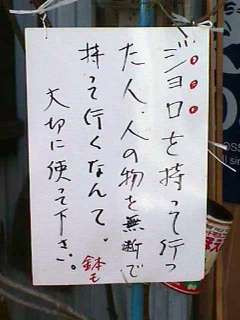 ジョロを持って行っ
た人、人の物を無断で
持って行くなんて。鉢も
大切に使って下さい。